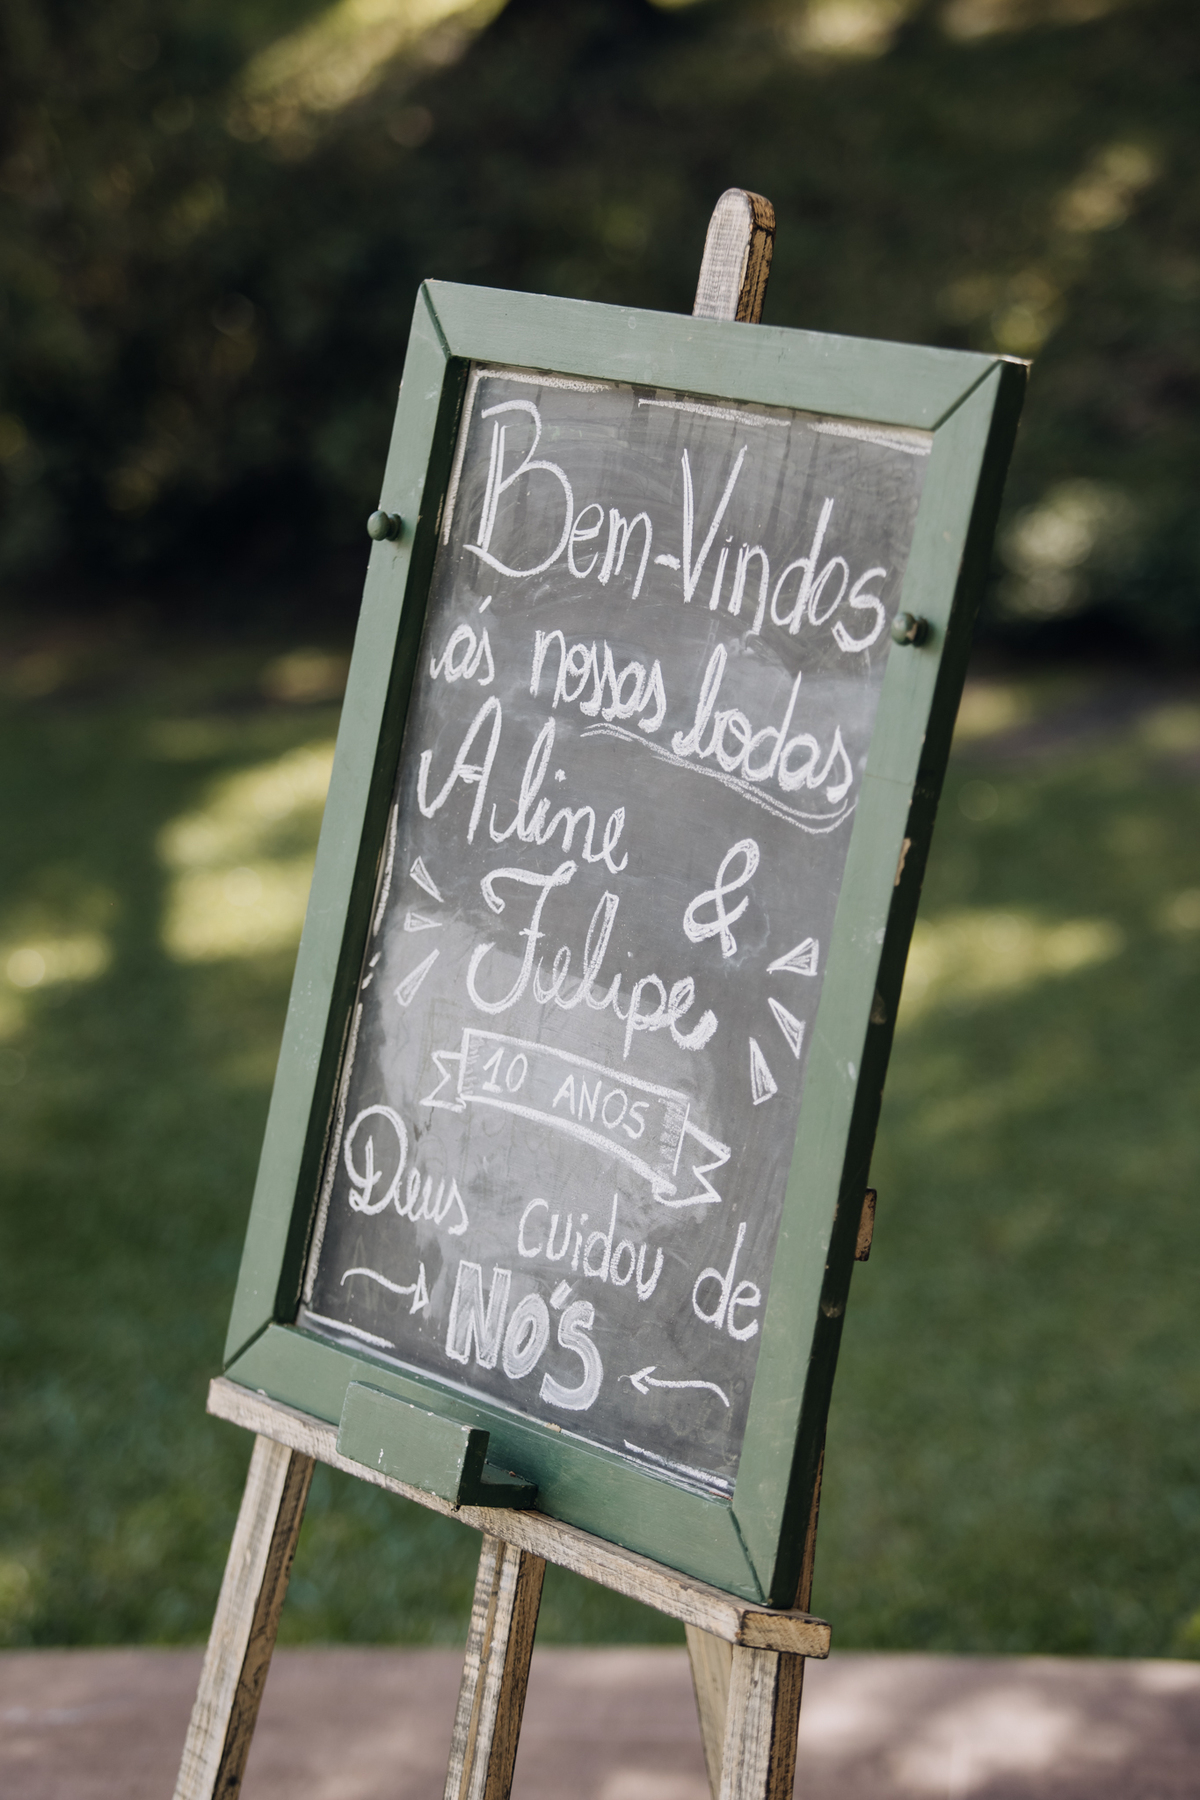 Bem-Vindos
ás nossas bodas
Aline &
Felipe
10 ANOS
Deus cuidou de
NÓS